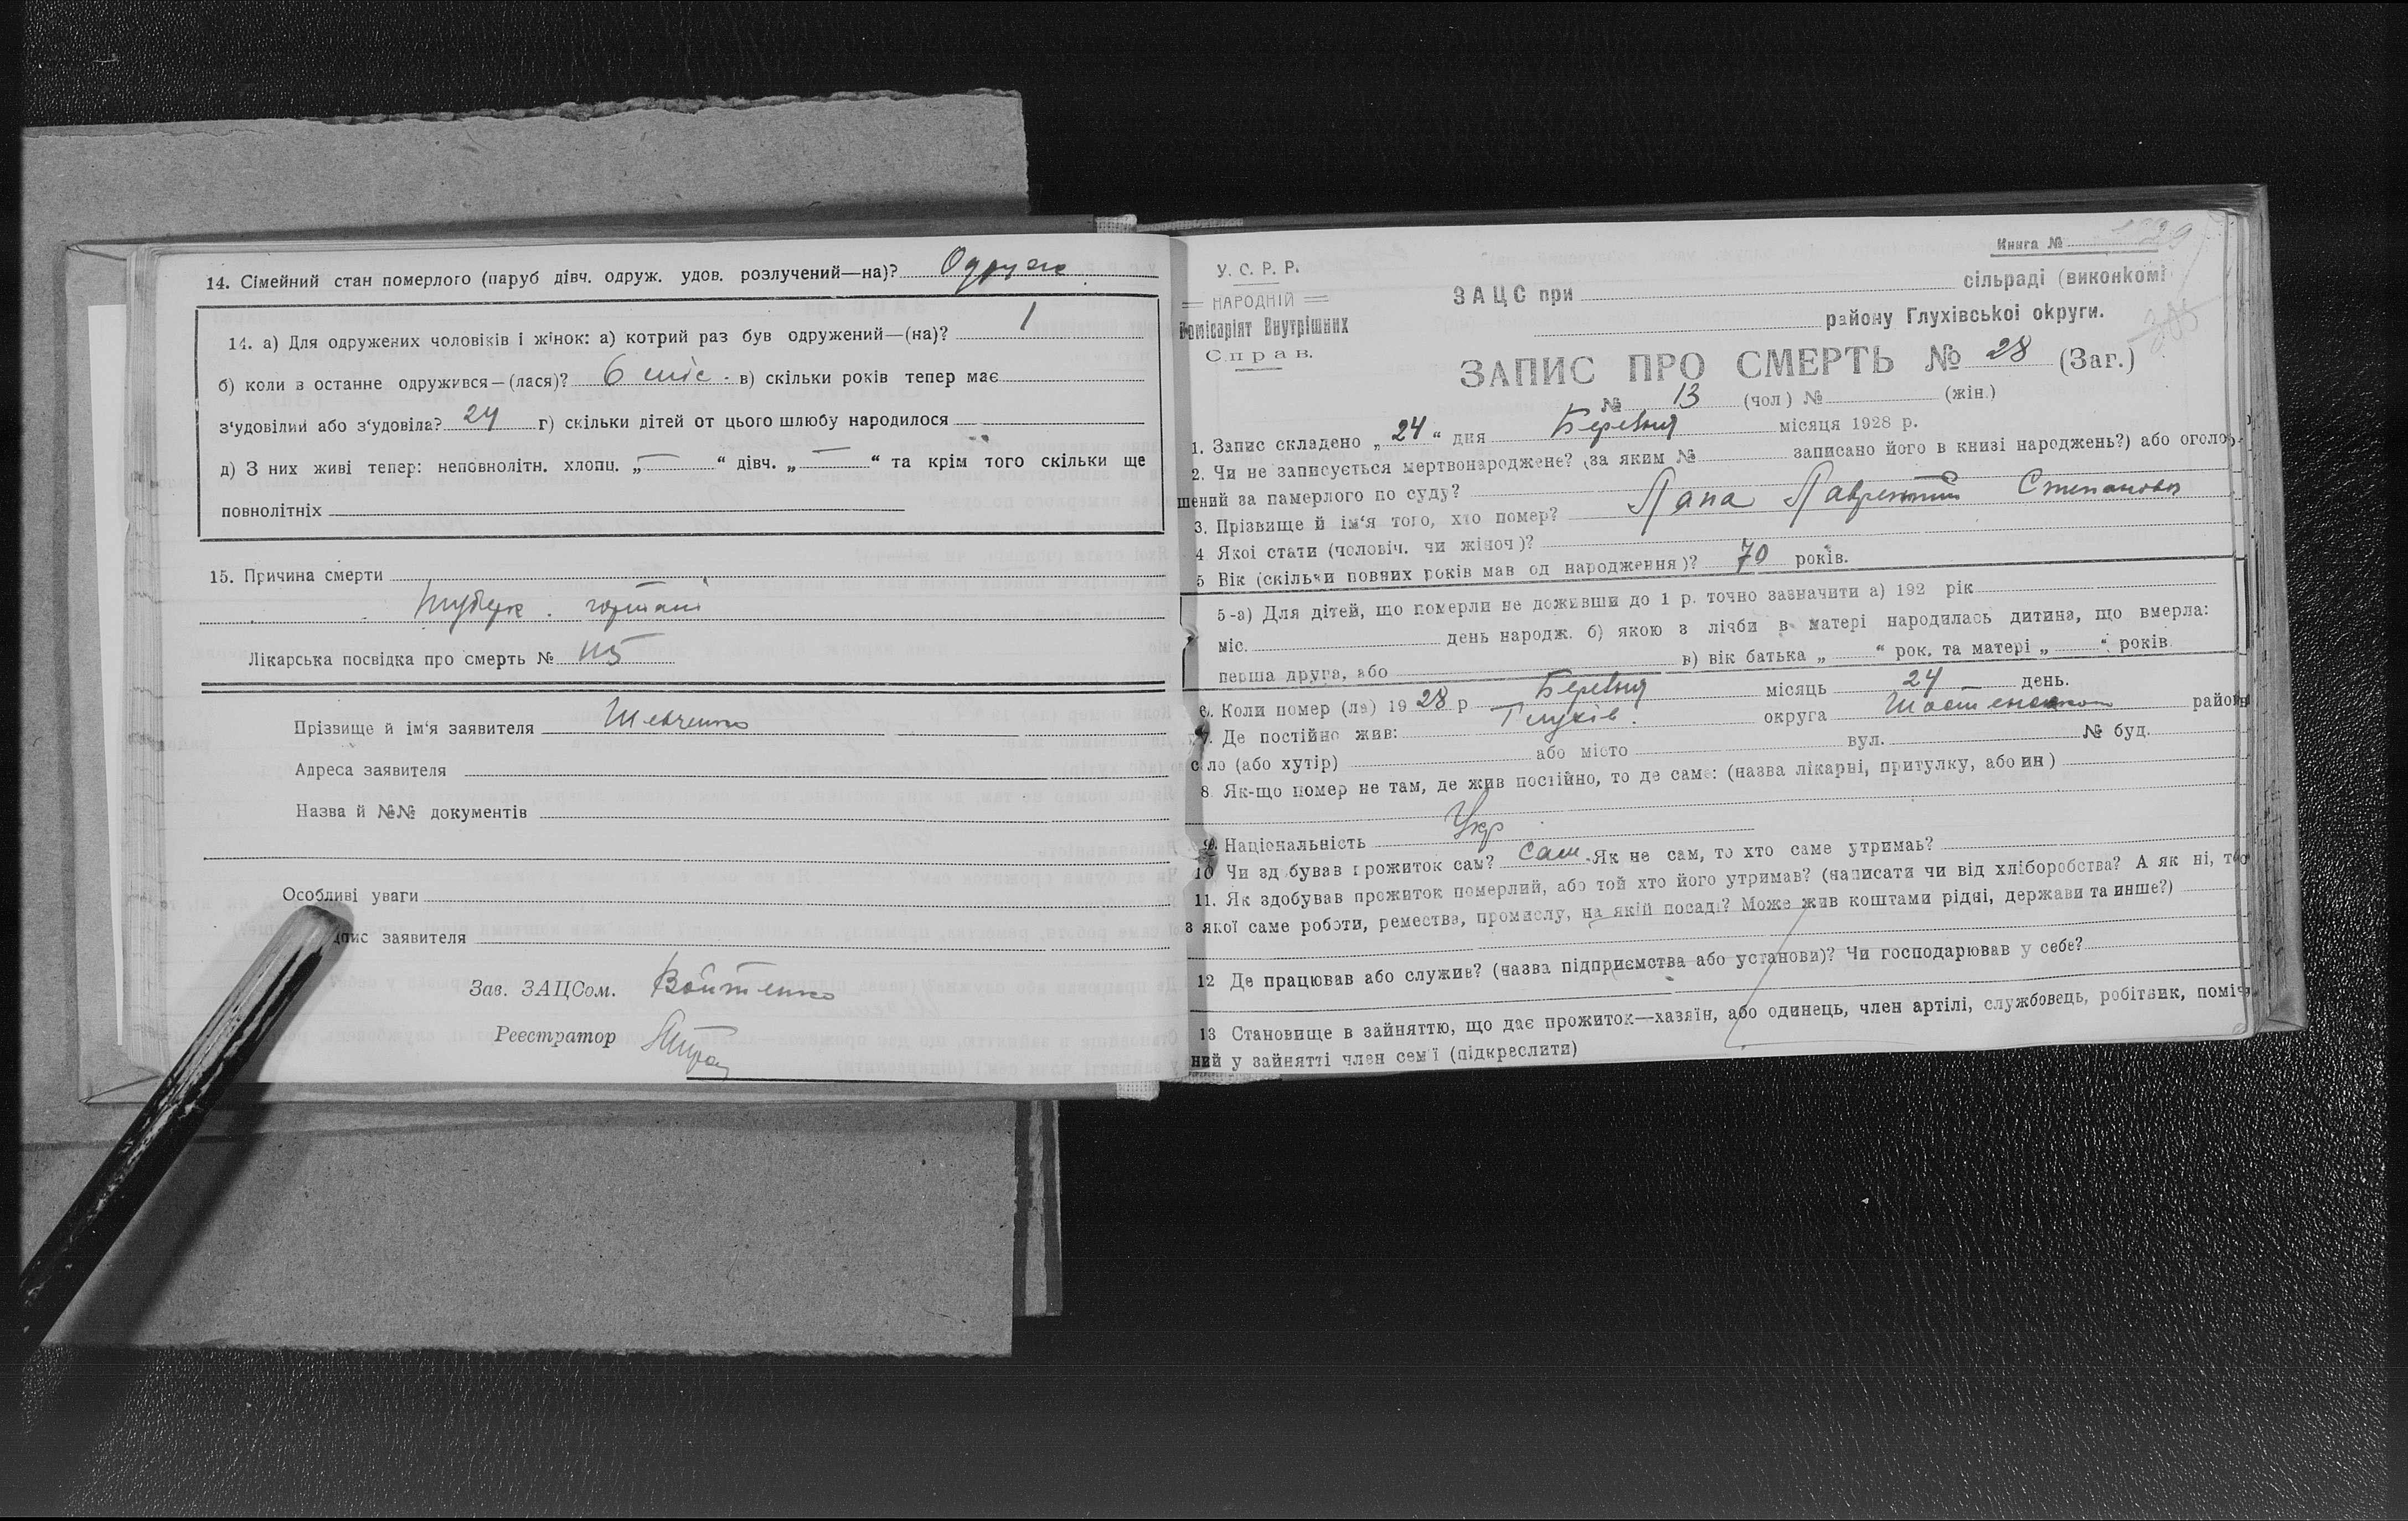 14. Сімейний стан померлого (паруб дівч. одруж. удов. розлучений—на)? Одруже
14. а) Для одружених чоловіків і жінок: а) котрий раз був одружений—(на)? 1
б) коли в останне одружився—(лася)? 6 міс. в) скільки років тепер має
з‘удовілий або з‘удовіла? 24 г) скільки дітей от цього шлюбу народилося
д) З них живі тепер: неповнолітн. хлопц. „ — “ дівч. „ — “ та крім того скільки ще
повнолітніх
15. Причина смерти
туберк. гортані
Лікарська посвідка про смерть № 115
Прізвище й ім‘я заявителя Шевченко
Адреса заявителя
Назва й №№ документів
Особливі уваги
дпис заявителя
Зав. ЗАЦСом. Войтенко
Реєстратор
Книга №
У. С. Р. Р.
НАРОДНІЙ
Комісаріят Внутрішних
Справ.
ЗАЦС при сільраді (виконкомі
району Глухівської округи.
ЗАПИС ПРО СМЕРТЬ № 28 (Заг.)
№ 13 (чол) № (жін.)
1. Запис складено „ 24 “ дня Березня місяця 1928 р.
2. Чи не записується мертвонароджене? (за яким № записано його в книзі народжень?) або оголо-
шений за памерлого по суду?
3. Прізвище й ім‘я того, хто помер? Лапа Лаврентий Степанов
4 Якої стати (чоловіч. чи жіноч)?
5 Вік (скільки повних років мав од народження)? 70 років.
5-а) Для дітей, що померли не доживши до 1 р. точно зазначити а) 192 рік
міс. день народж. б) якою з лічби в матері народилась дитина, що вмерла:
перша друга, або в) вік батька „ “ рок. та матері „ “ років
6. Коли помер (ла) 19 28 р Березня місяць 24 день.
7. Де постійно жив: Глухів. округа район
село (або хутір) або місто вул. № буд.
8. Як-що помер не там, де жив постійно, то де саме: (назва лікарні, притулку, або ин)
9. Національність Укр
10 Чи здобував прожиток сам? Сам. Як не сам, то хто саме утримав?
11. Як здобував прожиток померлий, або той хто його утримав? (написати чи від хліборобства? А як ні, то
з якої саме роботи, ремества, промислу, на якій посаді? Може жив коштами рідні, держави та инше?)
12 Де працював або служив? (назва підприємства або установи)? Чи господарював у себе?
13 Становище в зайняттю, що дає прожиток—хазяїн, або одинець, член артілі, службовець, робітник, поміч
ний у зайнятті член сем‘ї (підкреслити)